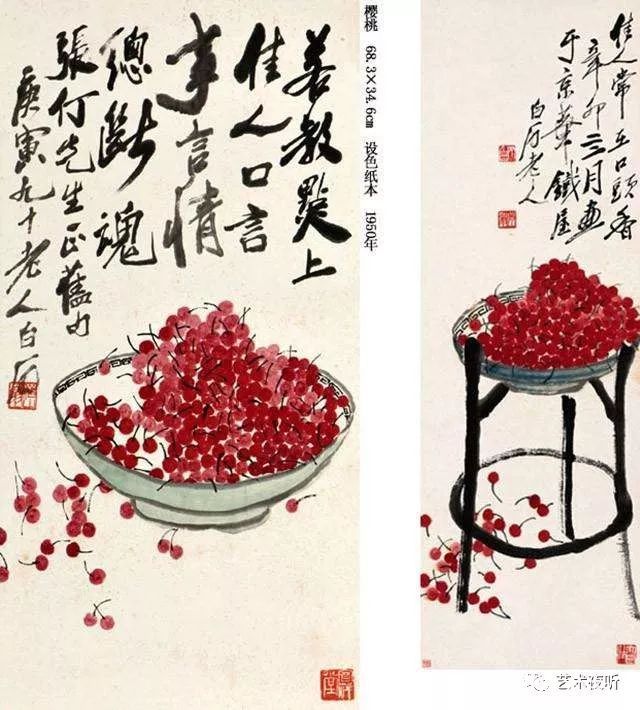 若教點上
佳人口言
事言情
總斷魂
張仃先生正舊句
庚寅九十老人白石
樱桃 68.3×34.6cm 设色纸本 1950年
佳人常在口頭香
辛卯三月畫
于京華鐵屋
白石老人
艺术夜听